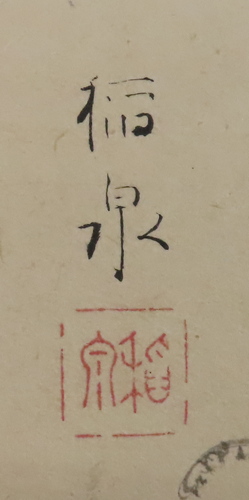 稲泉
稲泉